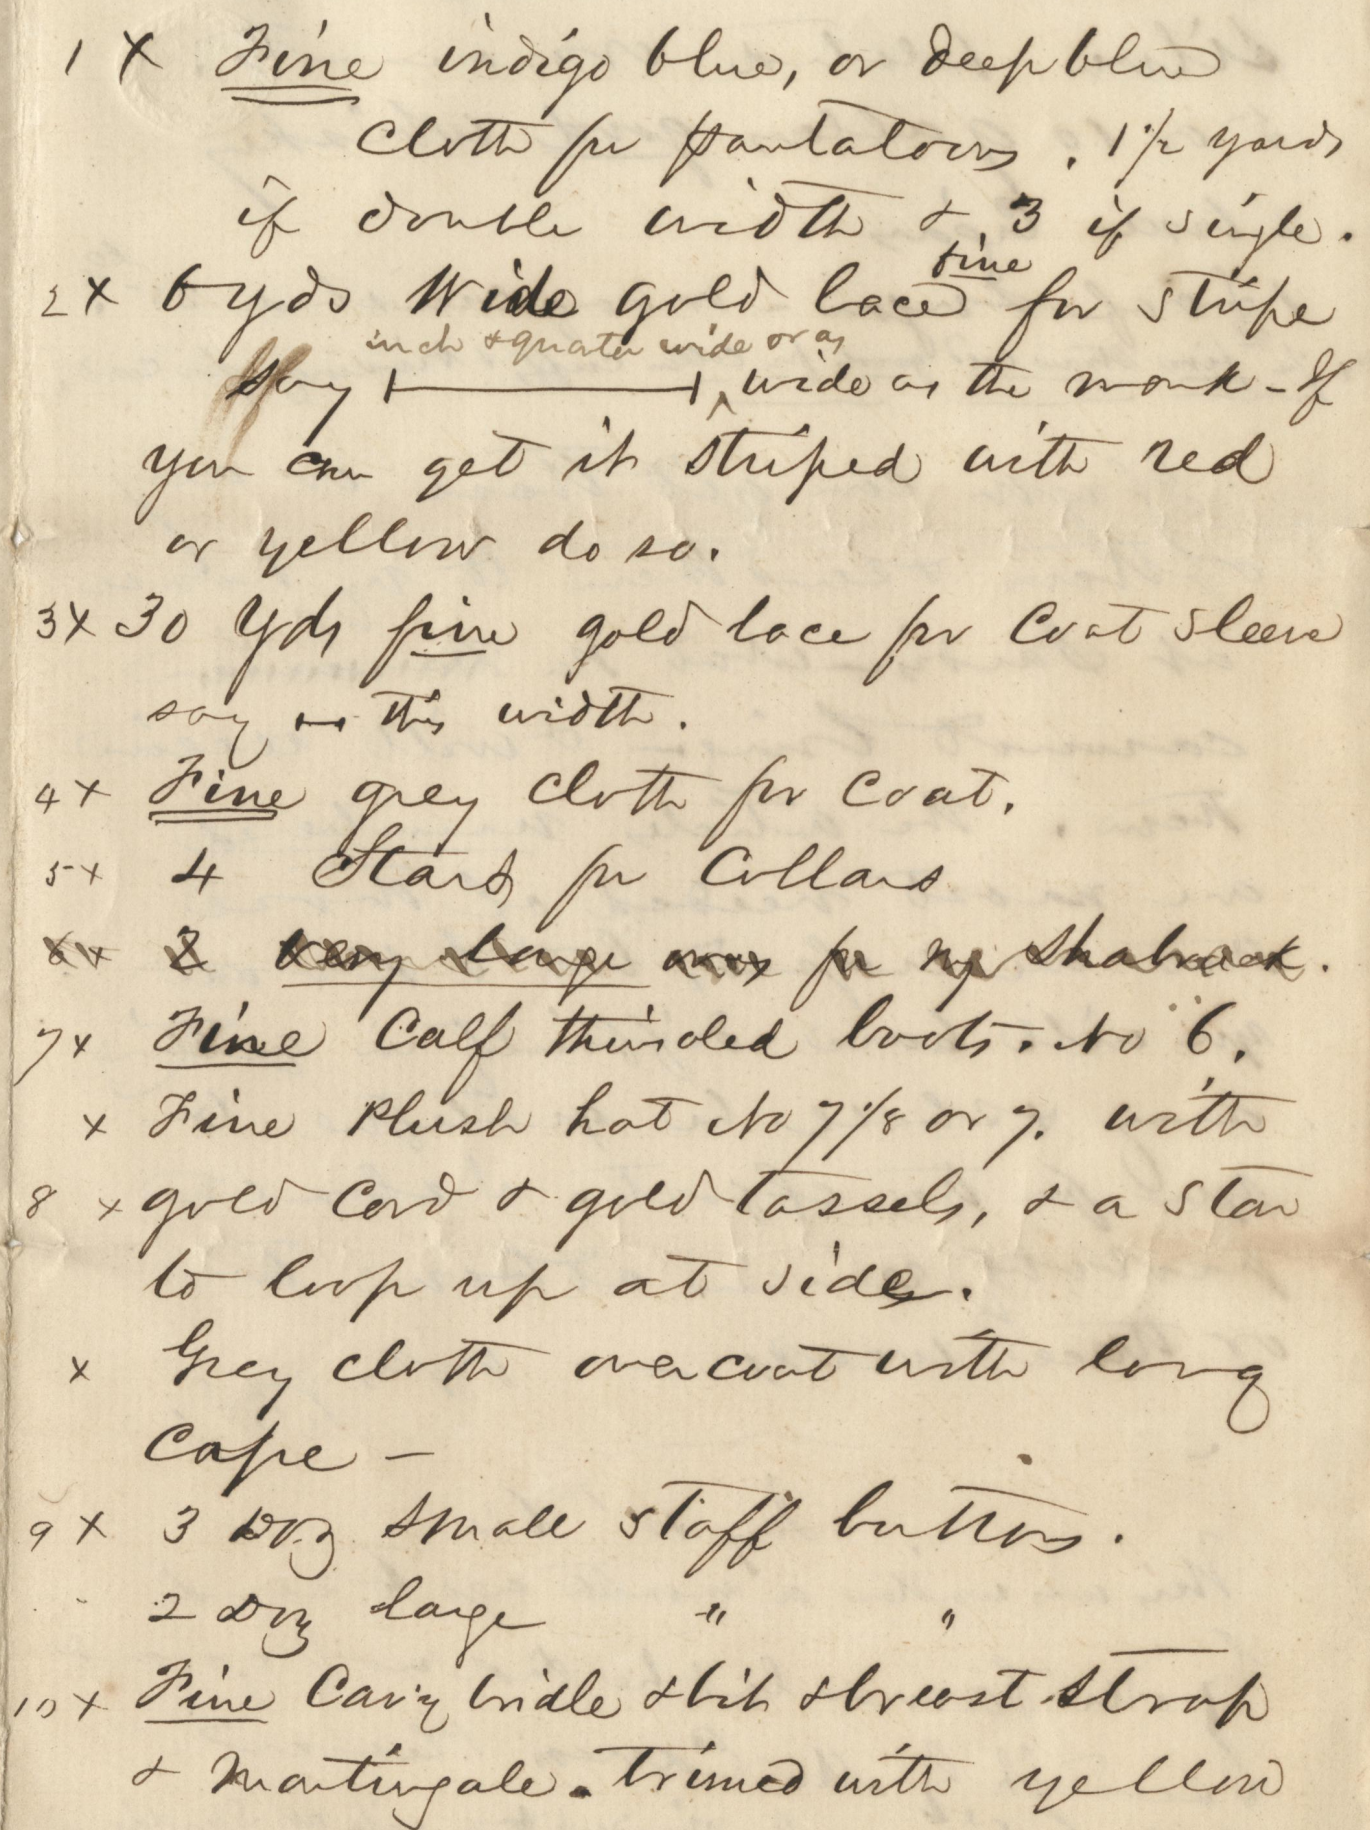 1 x Fine indigo blue, or deep blue
cloth for pantaloons. 1 1/2 yards
if double width & 3 if single.
fine
2 x 6 yds Wide gold lace for stripe
inch & quarter wide or as
say wide as the mark - If
you can get it striped with red
or yellow do so.
3 x 30 Yds fine gold lace for Coat sleeve
say this width.
4 x Fine grey cloth for Coat.
5 x 4 Stars for Collars
6 x 2 very large ones for my Shabrack.
7 x Fine Calf thinsoled boots. No 6.
x Fine Plush hat No 7 1/8 or 7. with
8 x gold Cord & gold tassels, & a Star
to loop up at side.
x Grey cloth overcoat with long
Cape -
9 x 3 Doz small staff buttons.
2 Doz large " "
10 x Fine Cav'y bridle & bit & breast strap
& Martingale. trimed with yellow